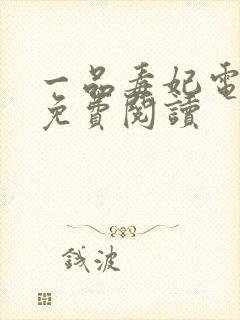 一品毒妃電
免費閱讀
錢波